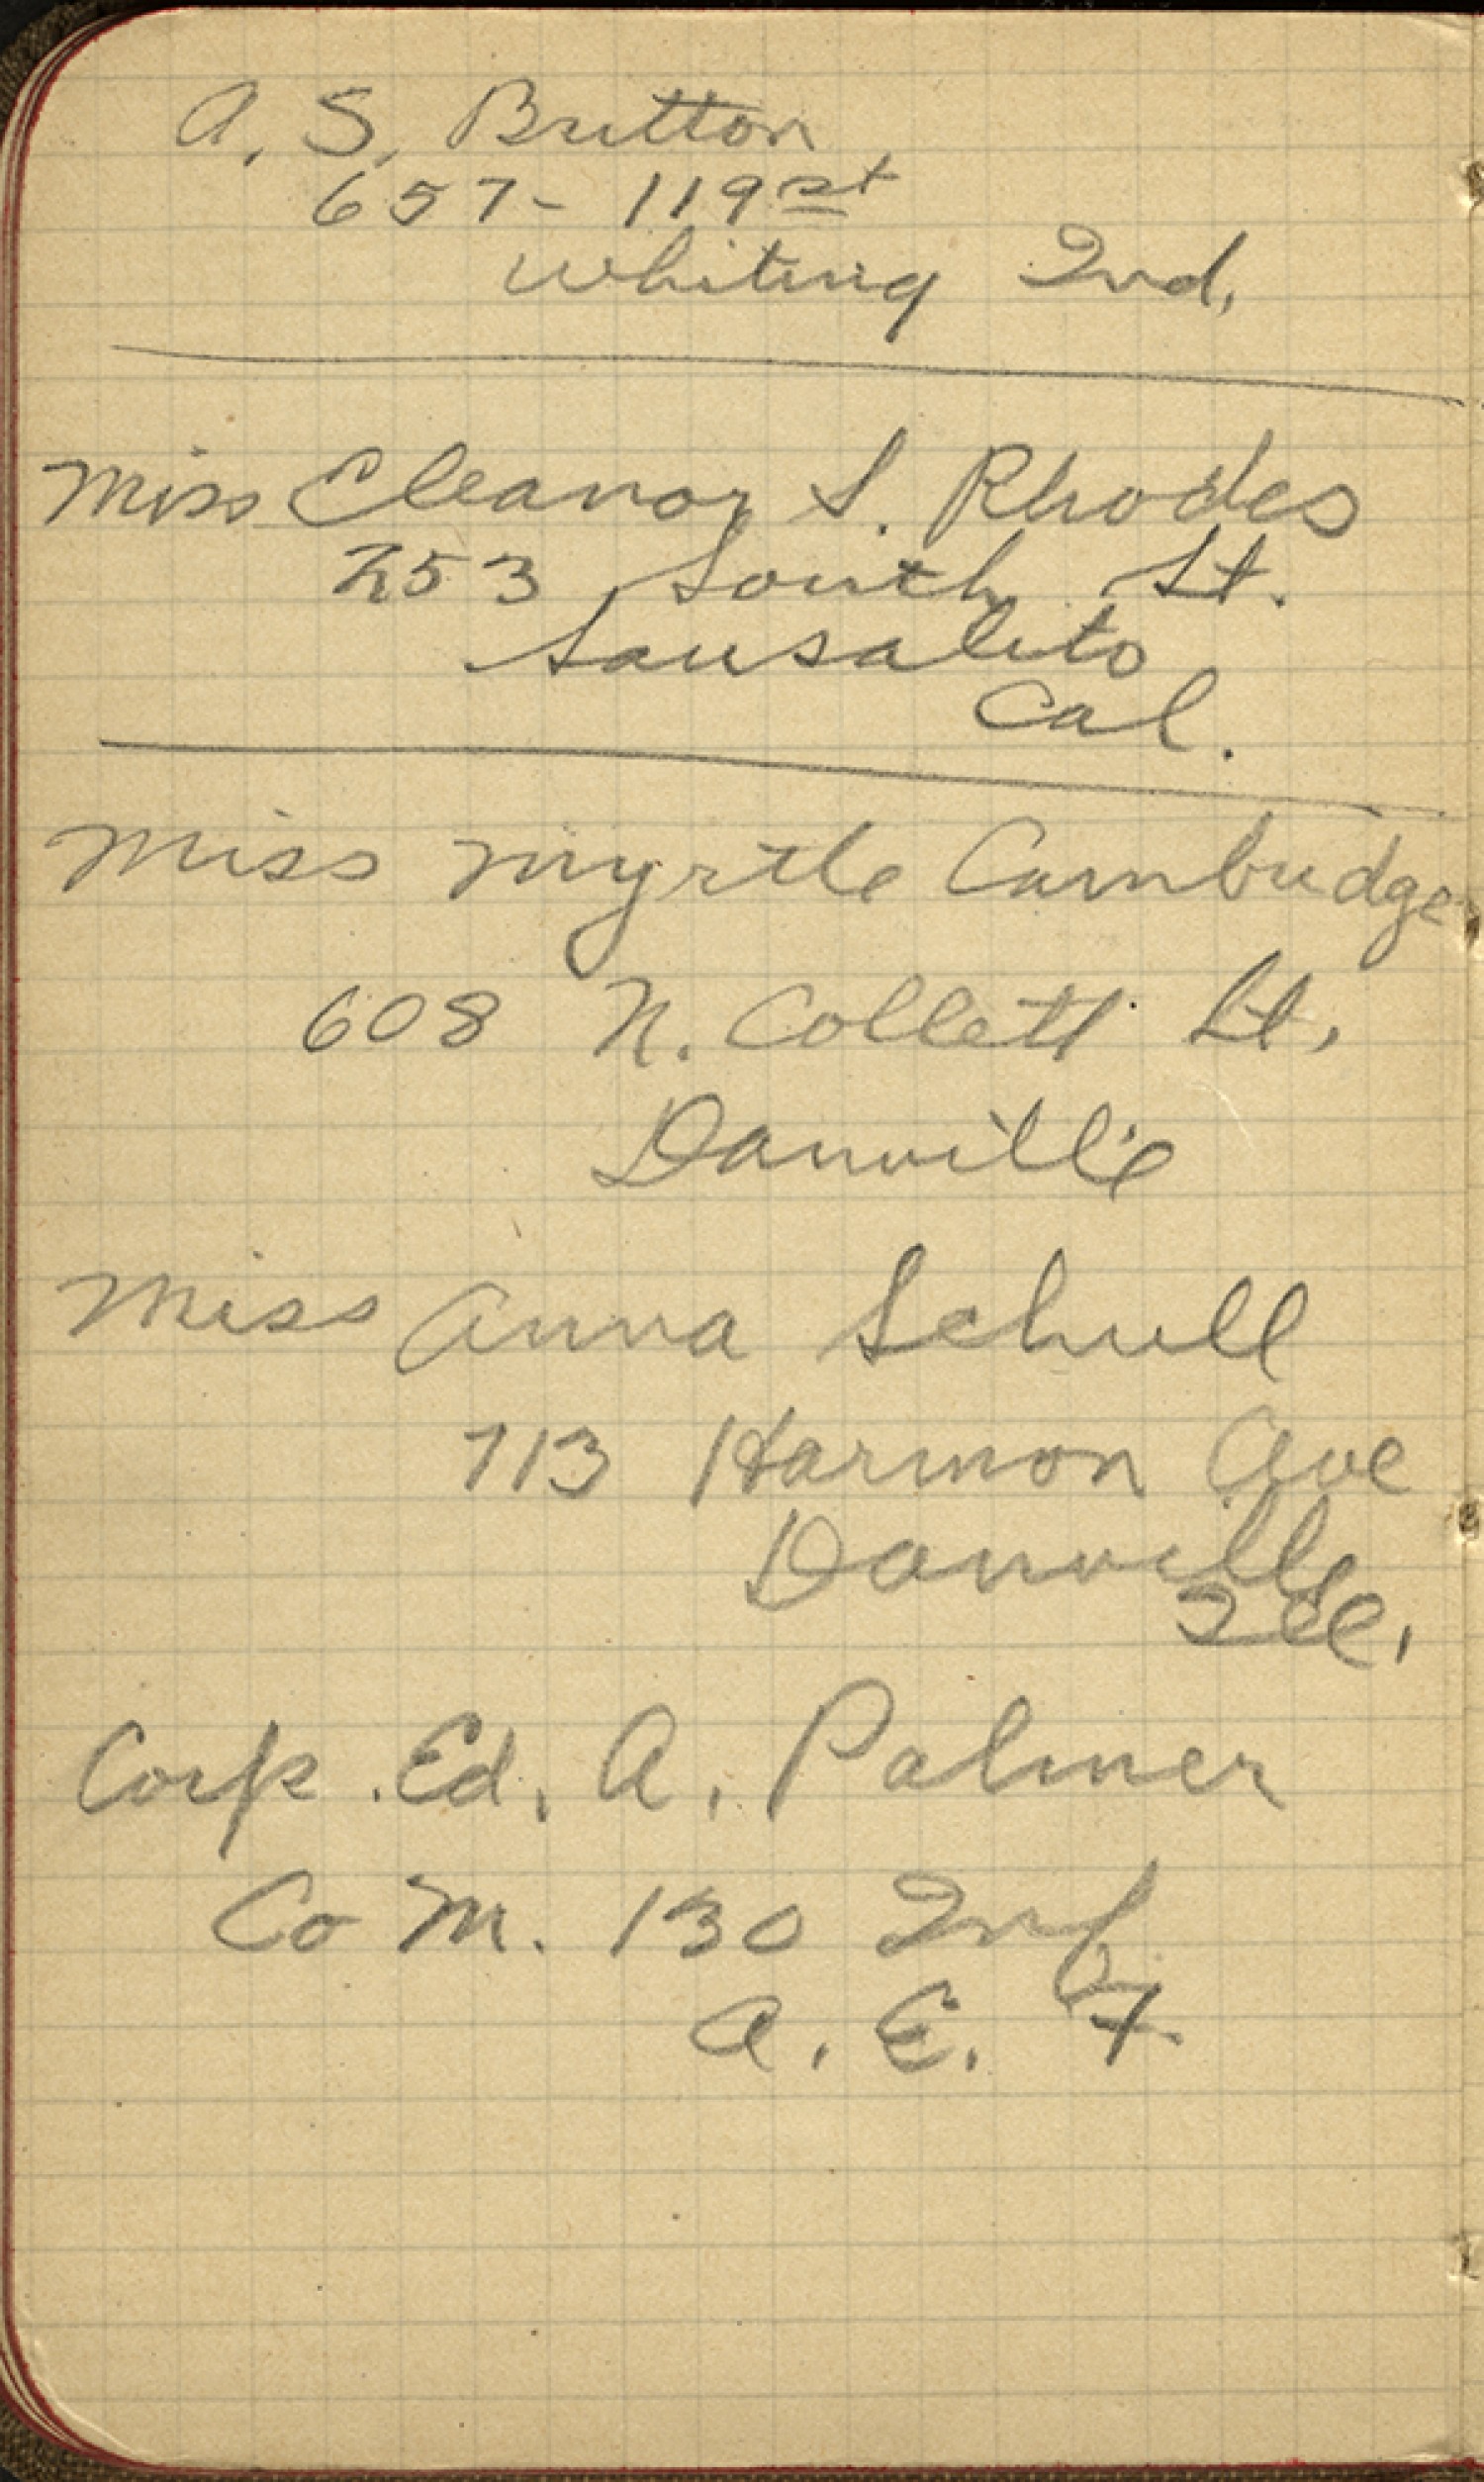 A. S. Britton
657 - 119 st
Whiting Ind.
Miss Eleanor S. Rhodes
253 South St.
Sausalito
Cal.
Miss Myrtle Cambridge
608 N. Collett St.
Danville
Miss Anna Schull
713 Harmon Ave
Danville
Ill.
Corp. Ed. A. Palmer
Co M. 130 Inf
A. E. F.